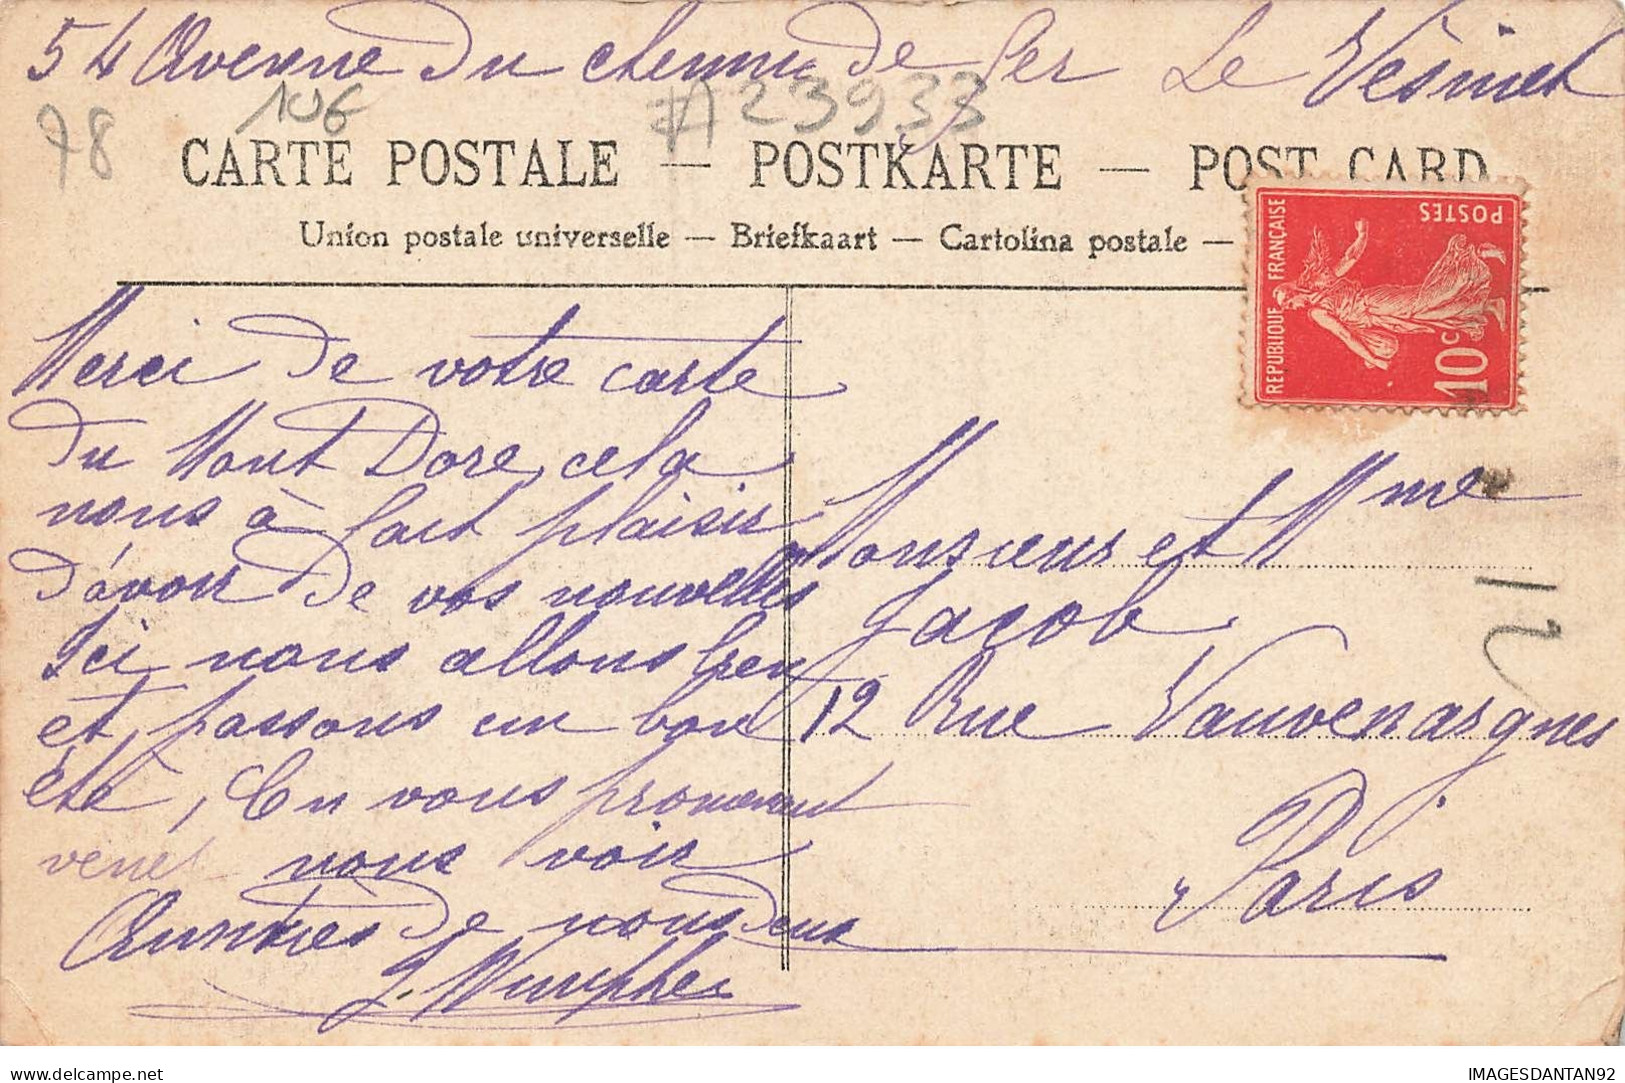 54 Avenue du chemin de fer Le Vésinet
78
10€
#A 23933
CARTE POSTALE — POSTKARTE — POST CARD
Union postale universelle — Briefkaart — Cartolina postale —
REPUBLIQUE FRANÇAISE
POSTES
10c
Merci de votre carte
du Mont Dore, cela
nous à fait plaisir
d'avoir de vos nouvelles
Ici nous allons bien
et passons un bon
été, En vous promenant
venez nous voir
Amitiés de nous deux
Monsieur et Mme
Jacob
12 Rue Vauvenargnes
Paris
12
IMAGESDANTAN92